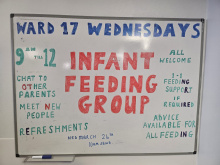 WARD 17 WEDNESDAYS
9AM TILL 12
INFANT
FEEDING
GROUP
CHAT TO
OTHER
PARENTS
MEET NEW
PEOPLE
REFRESHMENTS
ALL
WELCOME
1-1
FEEDING
SUPPORT
IF
REQUIRED
ADVICE
AVAILABLE FOR
ALL FEEDING
WED MARCH 26TH